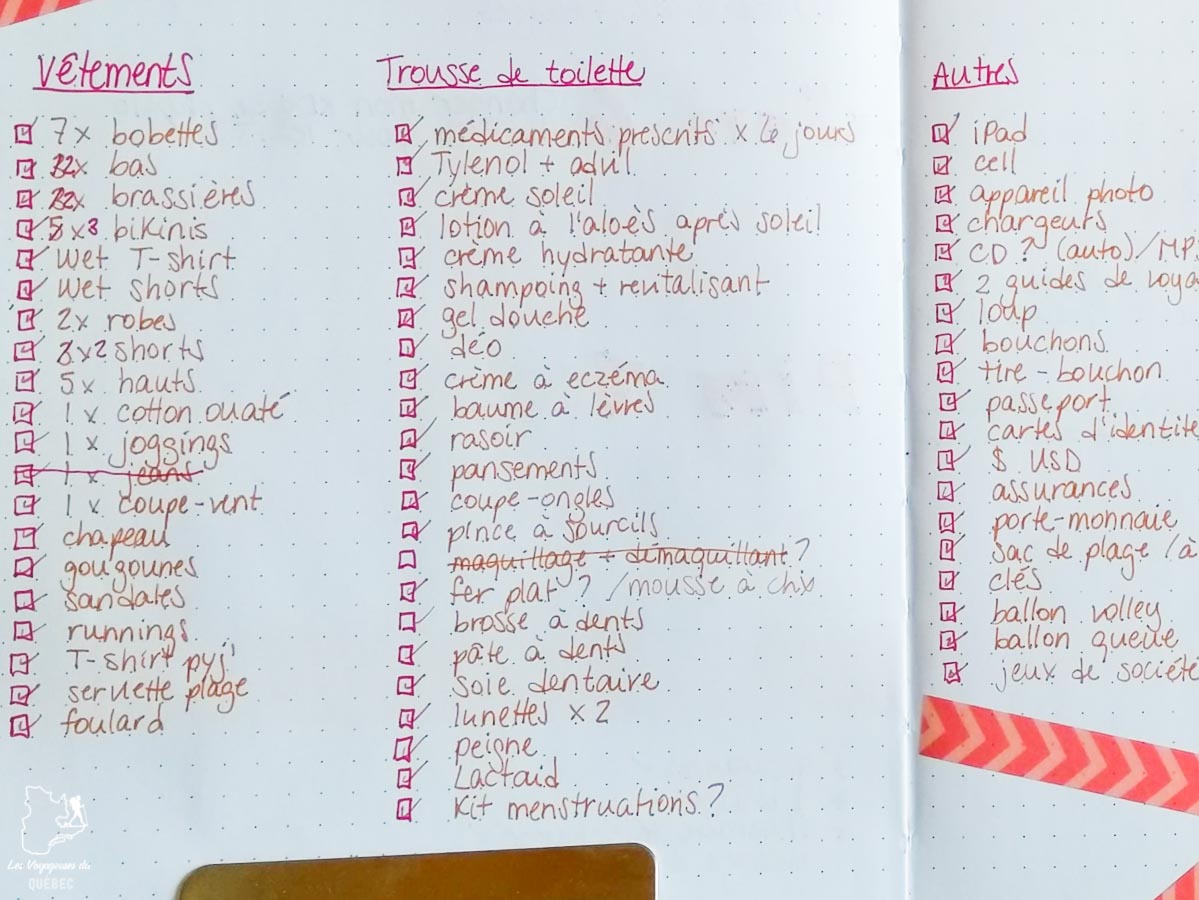 Vêtements
7x bobettes
2x bas
2x brassières
x3 bikinis
Wet T-shirt
Wet shorts
2x robes
x2 shorts
5x hauts
1 x cotton ouaté
1 x joggings
1 x jeans
1 x coupe-vent
chapeau
gougounes
sandales
runnings
T-shirt pyj'
serviette plage
foulard
Trousse de toilette
médicaments prescrits x jours
Tylenol + advil
crème soleil
lotion à l'aloès après soleil
crème hydratante
shampoing + revitalisant
gel douche
déo
crème à eczéma
baume à lèvres
rasoir
pansements
coupe-ongles
pince à sourcils
maquillage + démaquillant ?
fer plat ? / mousse à chx
brosse à dents
pâte à dents
soie dentaire
lunettes x 2
peigne
Lactaid
Kit menstruations ?
Autres
iPad
cell
appareil photo
chargeurs
CD ? (auto) / MP
2 guides de voya
loup
bouchons
tire-bouchon
passeport
cartes d'identité
$ USD
assurances
porte-monnaie
sac de plage / à
clés
ballon volley
ballon queue
jeux de société
Les Voyageuses du
QUÉBEC